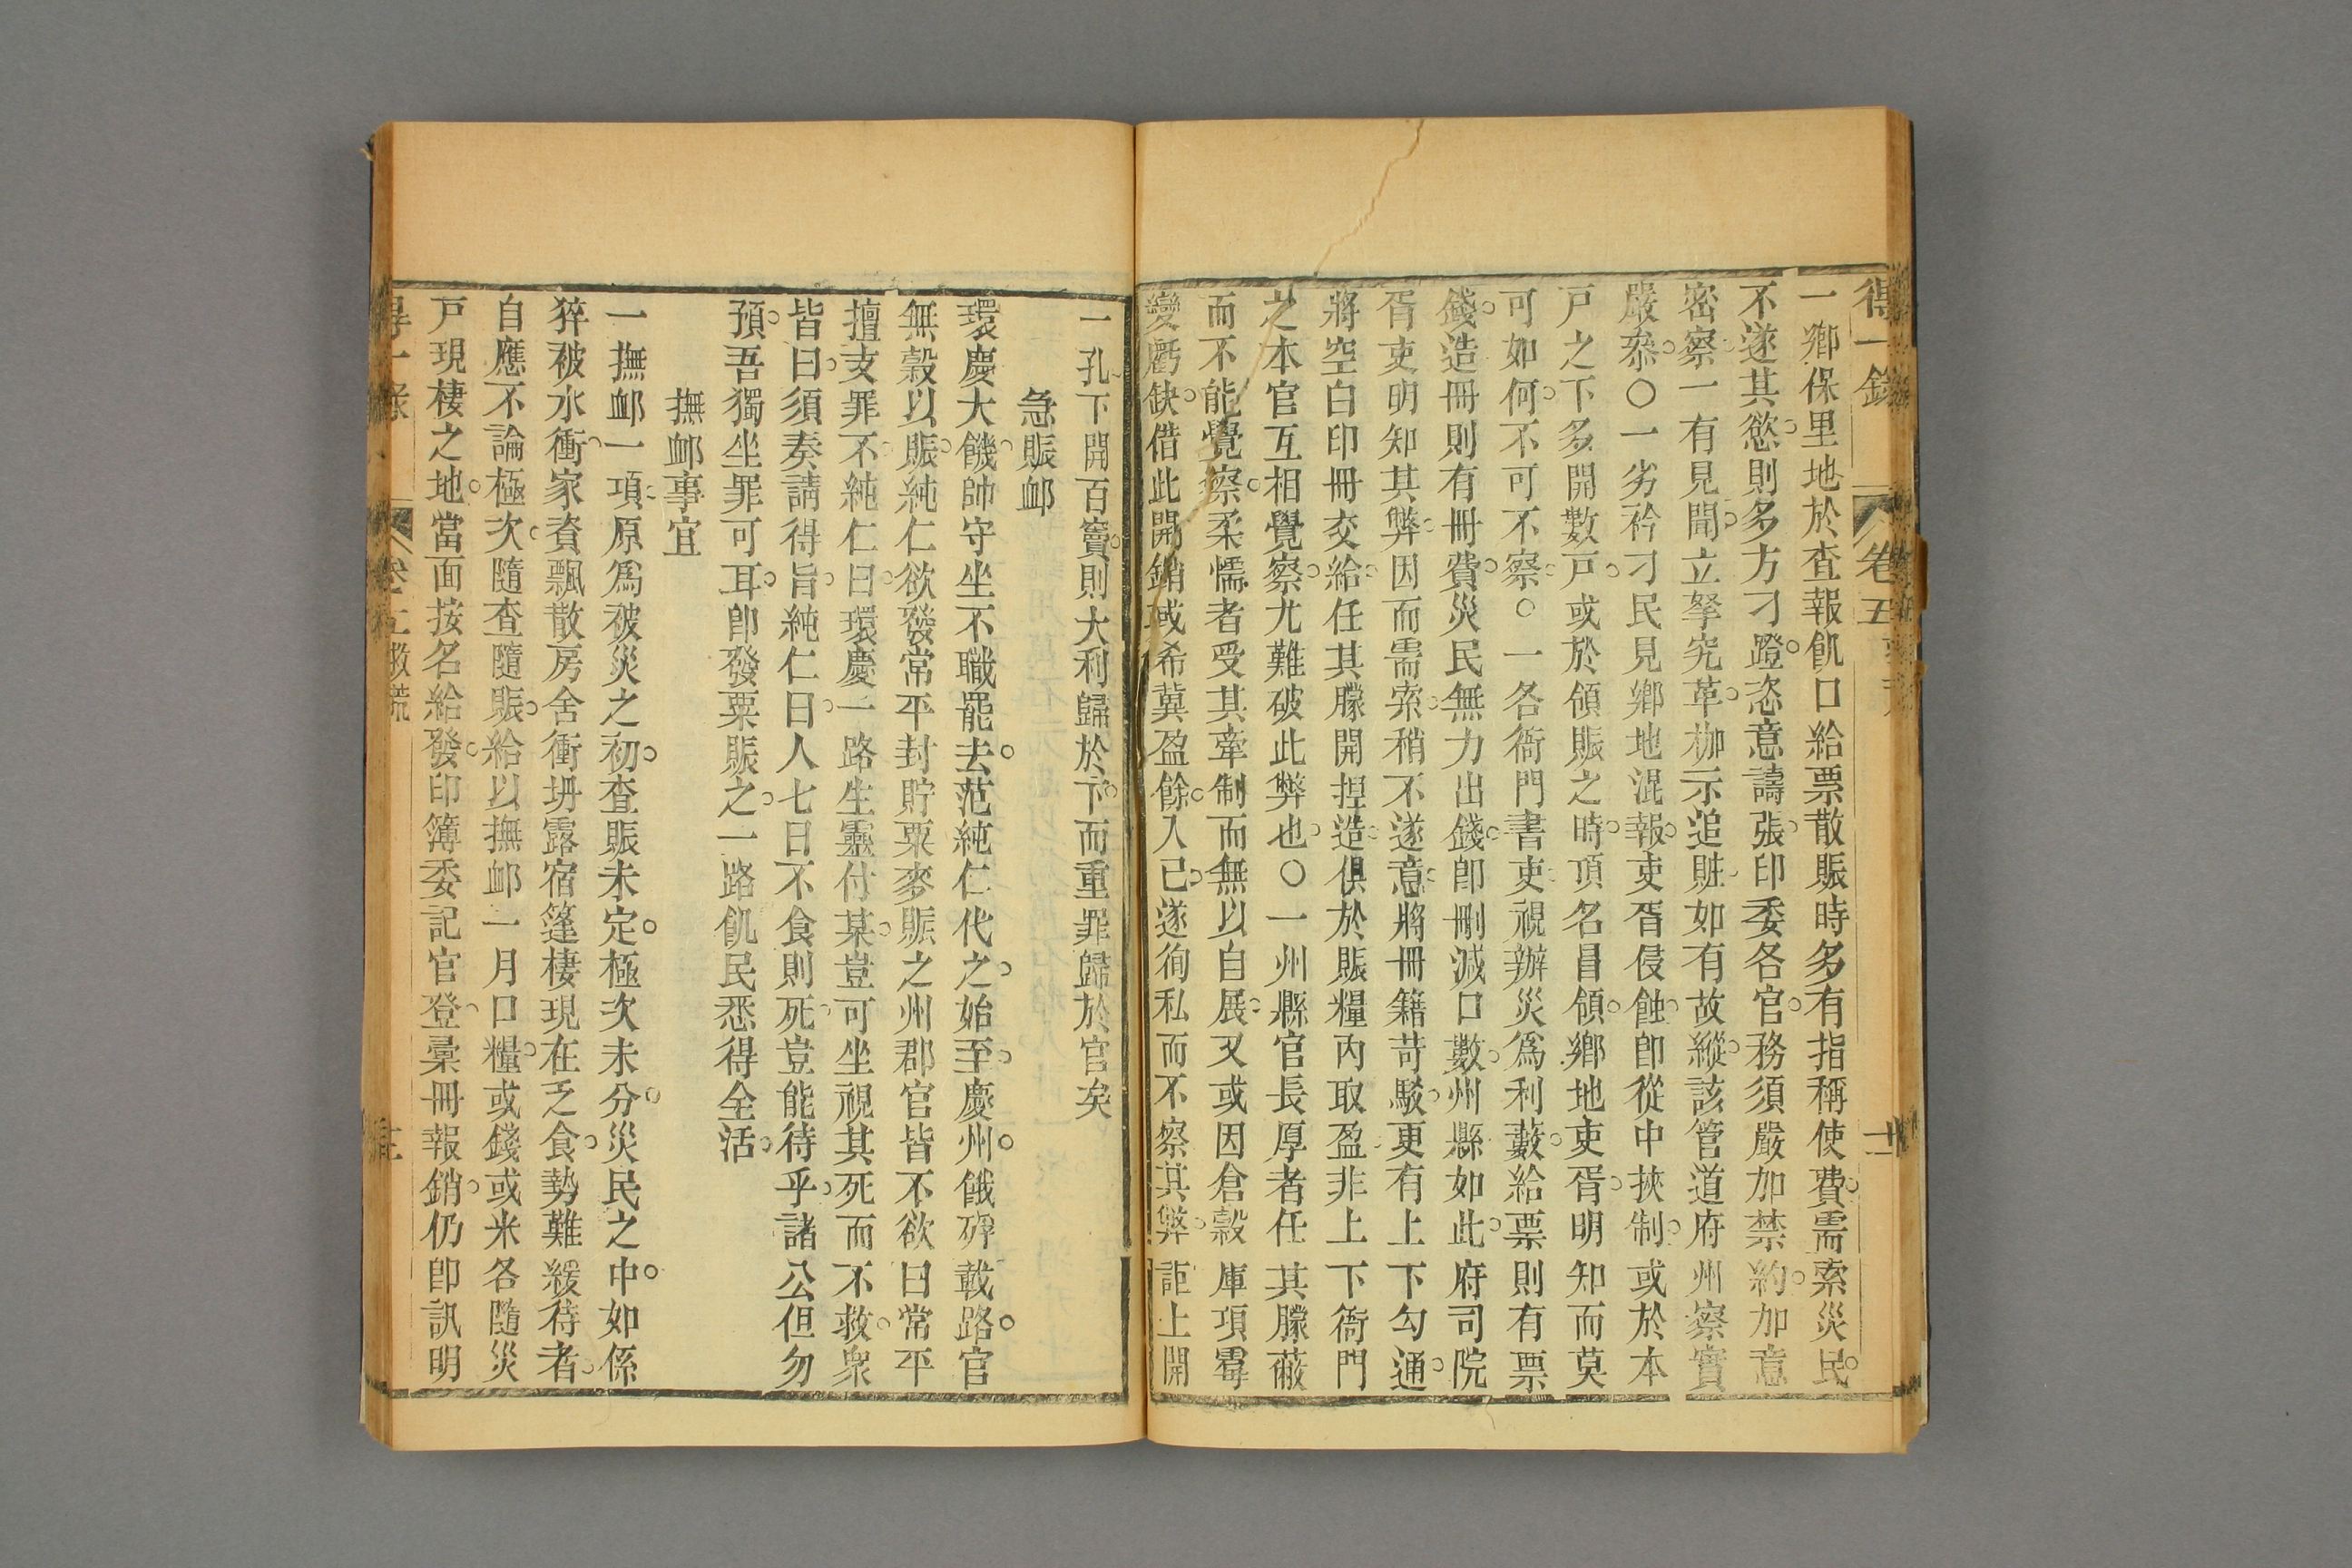 得一錄 卷五
一鄉保里地於查報飢口給票散賑時多有指稱使費需索災民
不遂其慾則多方刁蹬恣意譸張印委各官務須嚴加禁約加意
密察一有見聞立拏究革枷示追賍如有故縱該管道府州察實
嚴叅○一劣衿刁民見鄉地混報吏胥侵蝕卽從中挾制或於本
戸之下多開數戸或於領賑之時頂名冒領鄉地吏胥明知而莫
可如何不可不察○一各衙門書吏視辦災爲利藪給票則有票
錢造冊則有冊費災民無力出錢卽刪減口數州縣如此府司院
胥吏明知其弊因而需索稍不遂意將冊籍苛駁更有上下勾通
將空白印冊交給任其朦開捏造俱於賑糧內取盈非上下衙門
之本官互相覺察尤難破此弊也○一州縣官長厚者任其朦蔽
而不能覺察柔懦者受其牽制而無以自展又或因倉穀庫項霉
變虧缺借此開銷或希冀盈餘入已遂徇私而不察其弊詎上開
一孔下開百竇則大利歸於下而重罪歸於官矣
急賑衈
環慶大饑帥守坐不職罷去范純仁代之始至慶州餓殍載路官
無穀以賑純仁欲發常平封貯粟麥賑之州郡官皆不欲曰常平
擅支罪不純仁曰環慶一路生靈付某豈可坐視其死而不救衆
皆曰須奏請得旨純仁曰人七日不食則死豈能待乎諸公但勿
預吾獨坐罪可耳卽發粟賑之一路飢民悉得全活
撫衈事宜
一撫衈一項原爲被災之初查賑未定極次未分災民之中如係
猝被水衝家資飄散房舍衝坍露宿篷棲現在乏食勢難緩待者
自應不論極次隨查隨賑給以撫衈一月口糧或錢或米各隨災
戸現棲之地當面按名給發印簿委記官登彙冊報銷仍卽訊明
得一錄 卷五救荒